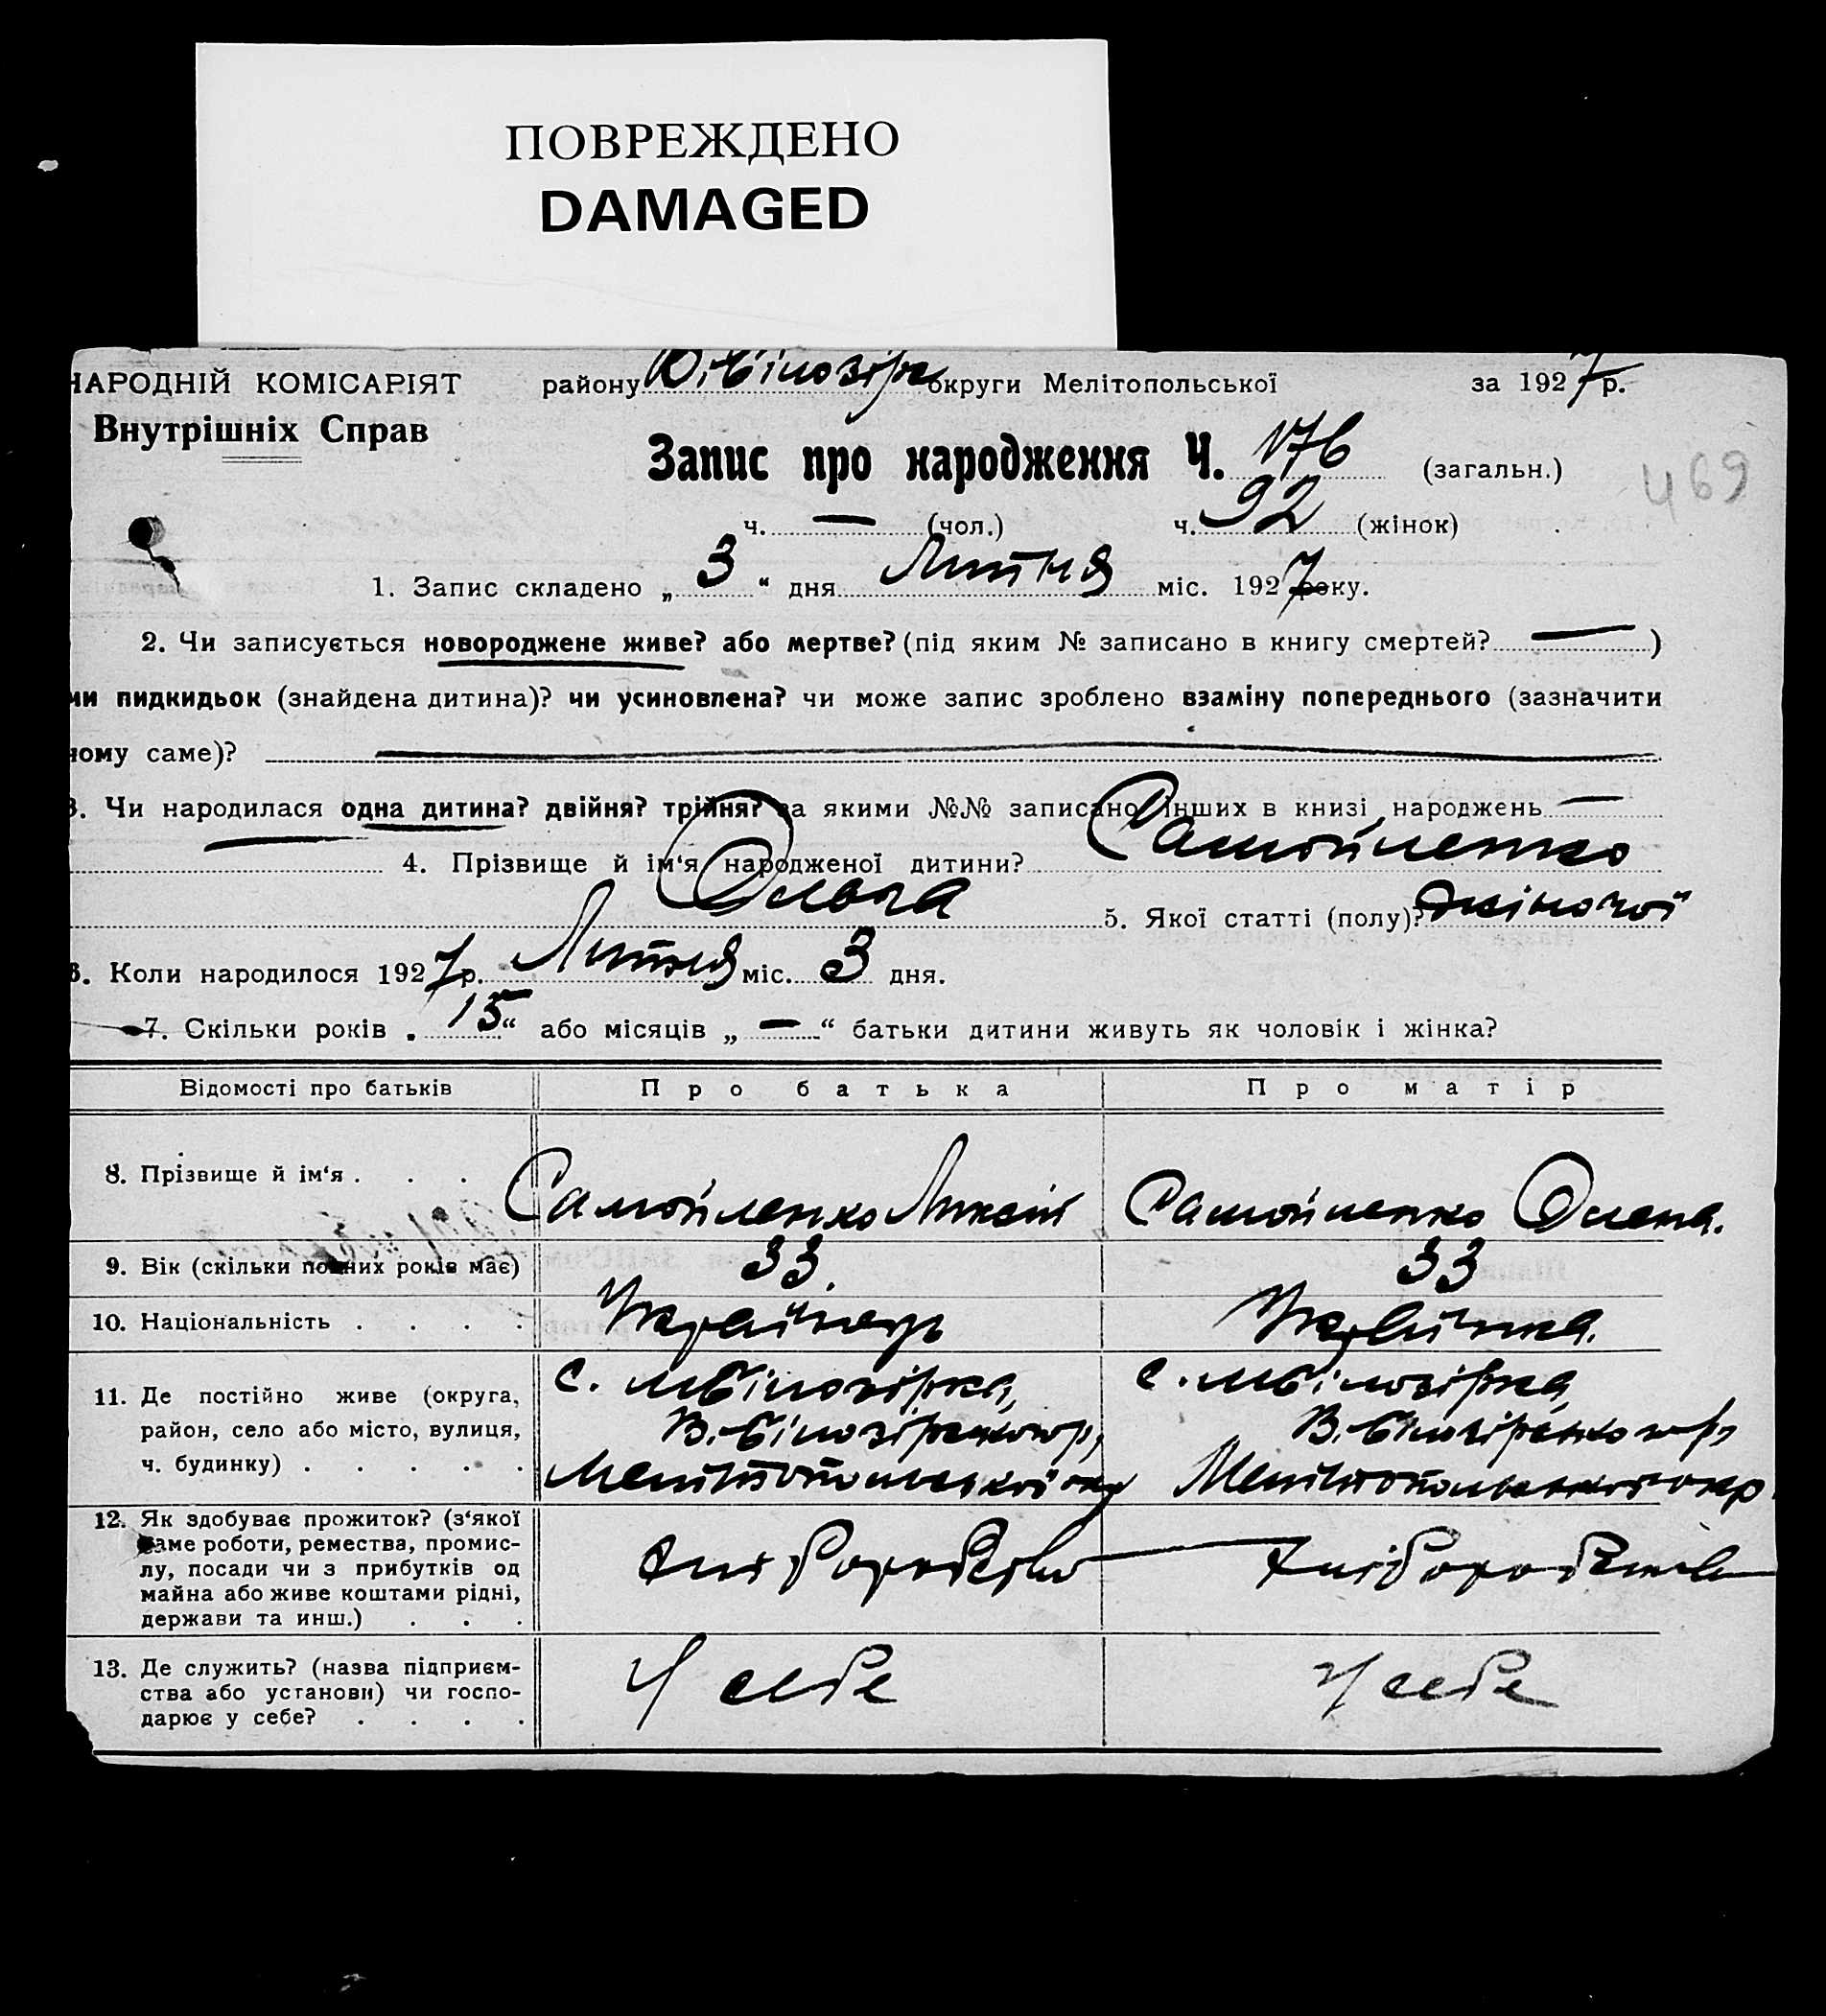 ПОВРЕЖДЕНО
DAMAGED
НАРОДНІЙ КОМІСАРІЯТ району округи Мелітопольської за 1927 р.
Внутрішніх Справ
Запис про народження Ч. 176 (загальн.)
469
ч. — (чол.) ч. 92 (жінок)
1. Запис складено „ 3 “ дня Лютня міс. 1927 року.
2. Чи записується новороджене живе? або мертве? (під яким № записано в книгу смертей? — )
чи пидкидьок (знайдена дитина)? чи усиновлена? чи може запис зроблено взаміну попереднього (зазначити
чому саме)? —
3. Чи народилася одна дитина? двійня? трійня? за якими №№ записано інших в книзі народжень —
— 4. Прізвище й ім‘я народженої дитини? Самойленко
Ольга 5. Якої статті (полу)? жіночої
6. Коли народилося 1927 р. Лютня міс. 3 дня.
7. Скільки років „ 15 “ або місяців „ — “ батьки дитини живуть як чоловік і жінка?
Відомості про батьків Про батька Про матір
8. Прізвище й ім‘я . . . Самойленко Самойленко Олена.
9. Вік (скільки повних років має) 33. 33
10. Національність . . . . Українець Українка.
11. Де постійно живе (округа, с. мбілозірка, с. мбілозірка,
район, село або місто, вулиця, В. Білозірського р, В. Білозірсько р,
ч. будинку) . . . . . Мелітопольської окр Мелітопольської окр.
12. Як здобуває прожиток? (з‘якої
саме роботи, ремества, промис-
лу, посади чи з прибутків од Хліборобство — Хліборобство
майна або живе коштами рідні,
держави та инш.) . . .
13. Де служить? (назва підприєм-
ства або установи) чи госпо- У себе У себе
дарює у себе? . . . .